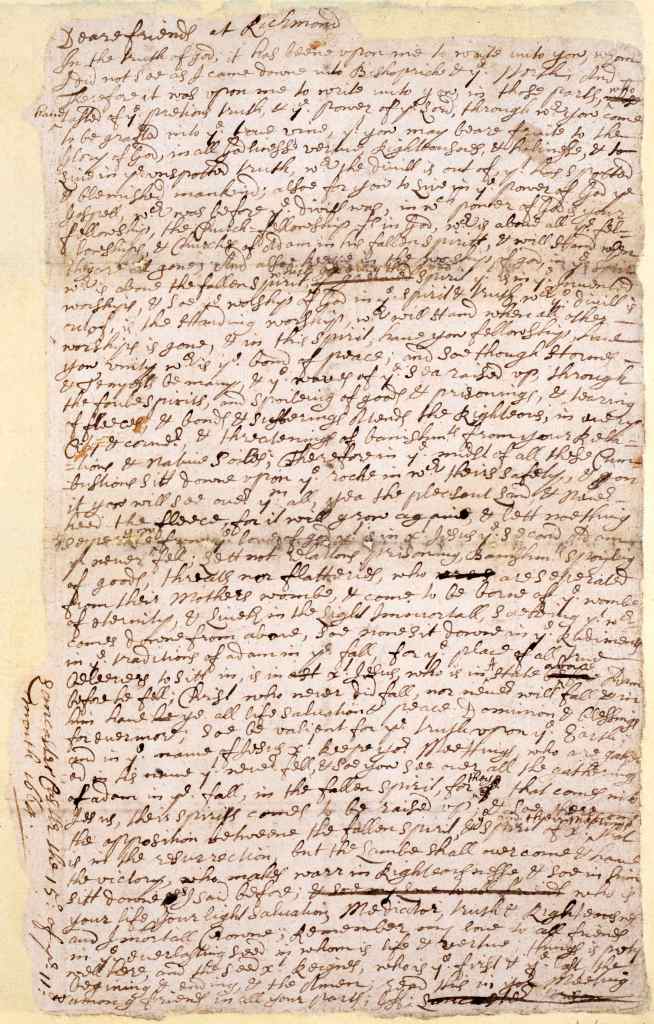 Deare friends at Richmond
In the truth of god, it has beene upon me to write unto you, whom
I did not see as I came downe into Bishoprick & ye North, And
therefore it was upon me to write unto you in those parts, who
haue tasted of ye pretious truth, & ye power of ye Lord, through wch you come
to be grafted into ye true vine, yt you may beare fruite to the
Glory of God, in all Godliness, vertue, Righteousnes, & holinesse, & to
Live in ye unspotted truth, wch the divill is out of, yt has spotted
& blemished mankind; alsoe for you to Live in ye power of God ye
Gospell, wch was before ye divill was, in wch power of God is your
fellowship, the Church-fellowship yt is in god, wch is above all ye fel-
-lowships, & Churches of Adam in his fallen spirit, & will stand when
they are all gone; And alsoe keepe in the worship of god, in ye
wch is above the fallen spirit, spirit yt is in ye
worships, & soe ye worship of God in ye spirit & truth, wch ye divill is
out of, is the standing worship, wch will stand when all other
worships is gone, & in this spirit, haue you fellowship, haue
you unity wch is ye bond of peace; and soe though stormes
& Tempests be many, & ye waves of ye sea raised up, through
the foule spirits, and spoileing of goods & prisonings, & tearing
of fleeces, & bonds & sufferings attends the Righteous, in every
& corner, & threatenings of banishmts from your Rela-
-tions & Native soiles; Therefore in ye midst of all these Com-
-bustions sitt downe upon ye rocke in wch theirs safety, & on
it you will see over ym all, yea the pleasant land & never
heed the fleece, for it will grow againe, & lett noething
seperate you from ye love of god yt is in xt Jesus ye second Adam
yt never fell, Lett not relations, prisoning, Banishmts, spoileing
of goods, threats nor flatteries, who are seperated
from their Mothers wombe, & come to be borne of ye wombe
of eternity, & Liveth in the Light Immortall, seeking yt wch
comes downe from above, soe none sitt downe in ye Rudiments
in ye traditions of adam in ye fall, for ye place of all true
beleevers to sitt in, is in xt Jesus, who is in state above Adam
before he fell; Christ who never did fall, nor never will fall & in
him haue ye all life salvation peace Dominion & blessings
for evermore; soe be valient for ye truth upon ye Earth
and in ye name of Jesus xt keepe yor Meetings, who are gather
ed in his name yt never fell, & soe you see over all the gatherings
of adam in ye fall, in the fallen spirit, for those that comes into
Jesus, their spirits comes to be raised up, & soe there is
the opposition betweene the fallen spirit, & ye spirit of xt, that
is in the resurrection, but the Lambe shall overcome & haue
the victory, who makes warr in Righteousnesse, & soe in him
sitt downe as I said before; who is
your life, your light salvation, Mediator, truth & Righteousnes
and Imortall Crowne; Remember my love to all friends
in ye everlasting seed in whom is life & vertue, things is pretty
well here, and the seed xt Reignes, who is ye first & ye last the
begining & ending, & the Amen; read this in yor Meeting
amongst friends in all your parts;
Lancaster Castle the 15th of ye 11:
month 1664